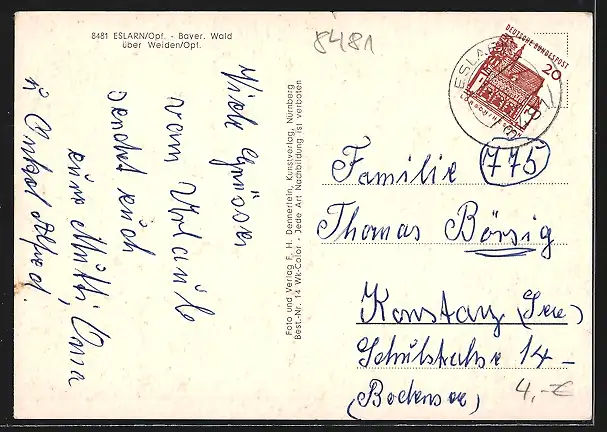 8481 ESLARN/Opf. - Bayer. Wald
über Weiden/Opf.
8481
DEUTSCHE BUNDESPOST
20
LORSCH
ESLARN
Viele Grüsse
vom Urlaub
sendet euch
eure Mutti, Oma
u Onkel Alfred.
Foto und Verlag F. H. Dennerlein, Kunstverlag, Nürnberg
Best.-Nr. 14 Wk-Color - Jede Art Nachbildung ist verboten
775
Familie
Thomas Börsig
Konstanz (See)
Schulstraße 14 -
(Bodensee)
4,-€